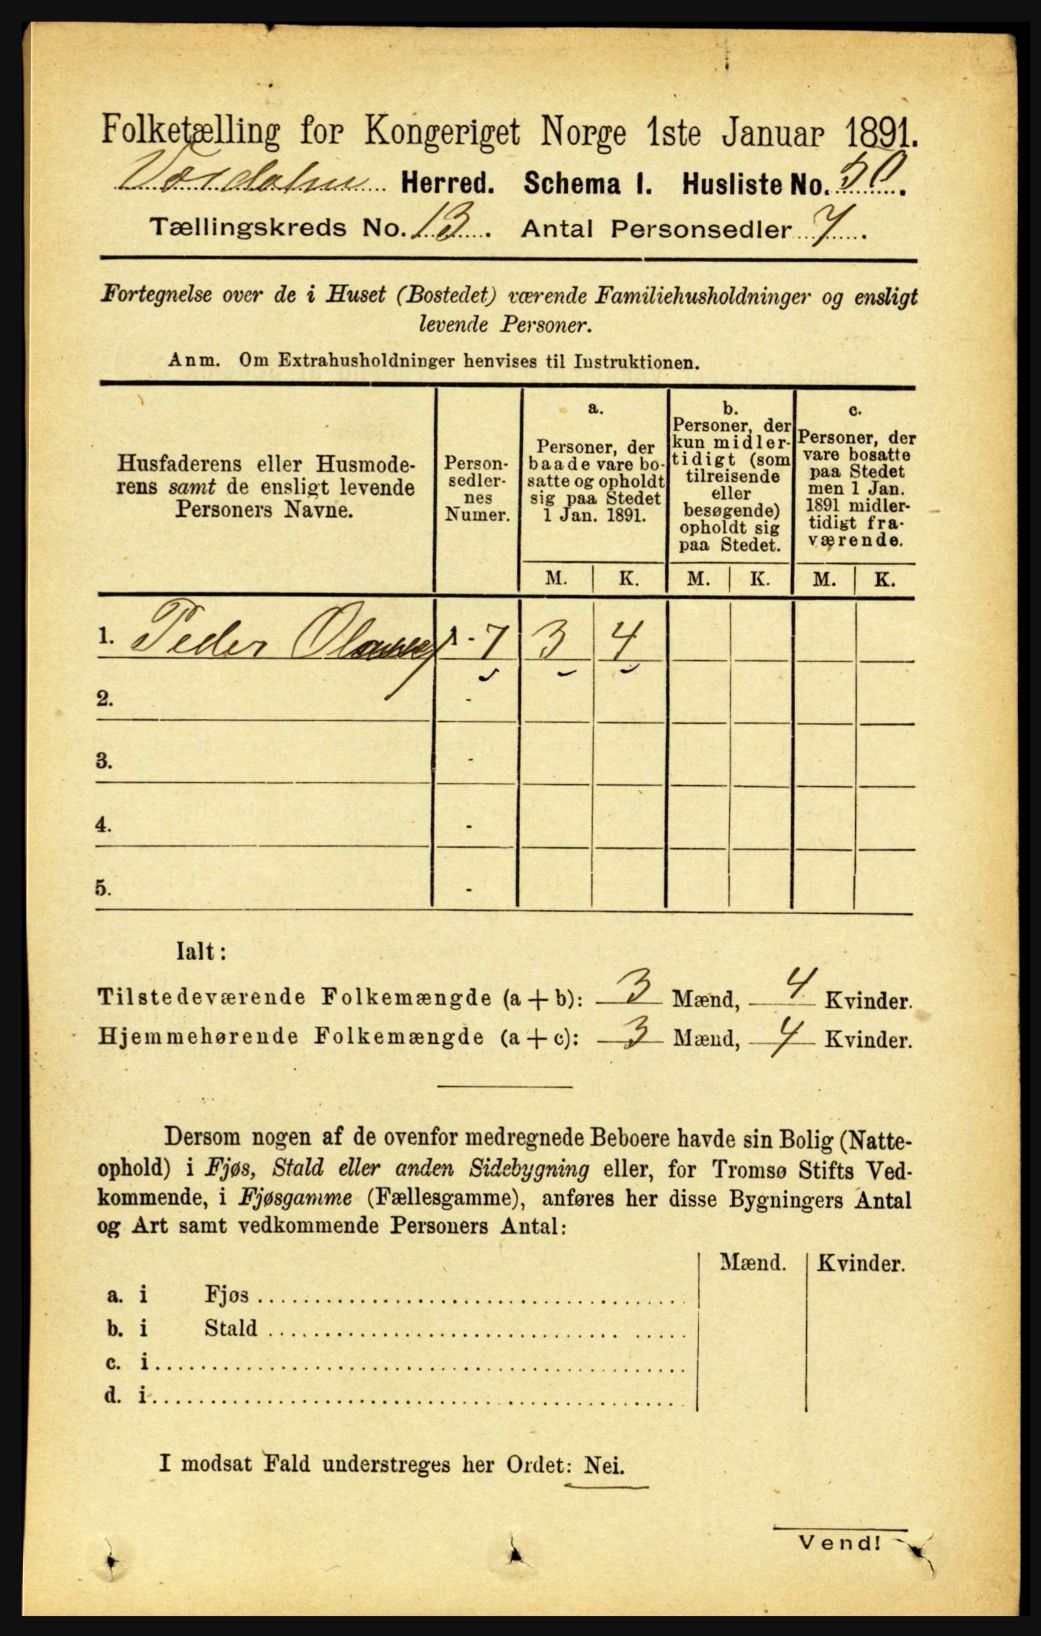 Folketælling for Kongeriget Norge 1ste Januar 1891.
Herred. Schema 1. Husliste No. 50.
Tællingskreds No. 13. Antal Personsedler 7.
Fortegnelse over de i Huset (Bostedet) værende Familiehusholdninger og ensligt
levende Personer.
Anm. Om Extrahusholdninger henvises til Instruktionen.
Husfaderens eller Husmode-
rens samt de ensligt levende
Personers Navne.
Person-
sedler-
nes
Numer.
a.
Personer, der
baade vare bo-
satte og opholdt
sig paa Stedet
1 Jan. 1891.
b.
Personer, der
kun midler-
tidigt (som
tilreisende
eller
besøgende)
opholdt sig
paa Stedet.
c.
Personer, der
vare bosatte
paa Stedet
men 1 Jan.
1891 midler-
tidigt fra-
værende.
M. K. M. K. M. K.
1. Peder 1-7 3 4
2. -
3. -
4. -
5. -
Ialt:
Tilstedeværende Folkemængde (a+b): 3 Mænd, 4 Kvinder.
Hjemmehørende Folkemængde (a+c): 3 Mænd, 4 Kvinder.
Dersom nogen af de ovenfor medregnede Beboere havde sin Bolig (Natte-
ophold) i Fjøs, Stald eller anden Sidebygning eller, for Tromsø Stifts Ved-
kommende, i Fjøsgamme (Fællesgamme), anføres her disse Bygningers Antal
og Art samt vedkommende Personers Antal:
Mænd. Kvinder.
a. i Fjøs
b. i Stald
c. i
d. i
I modsat Fald understreges her Ordet: Nei.
Vend!